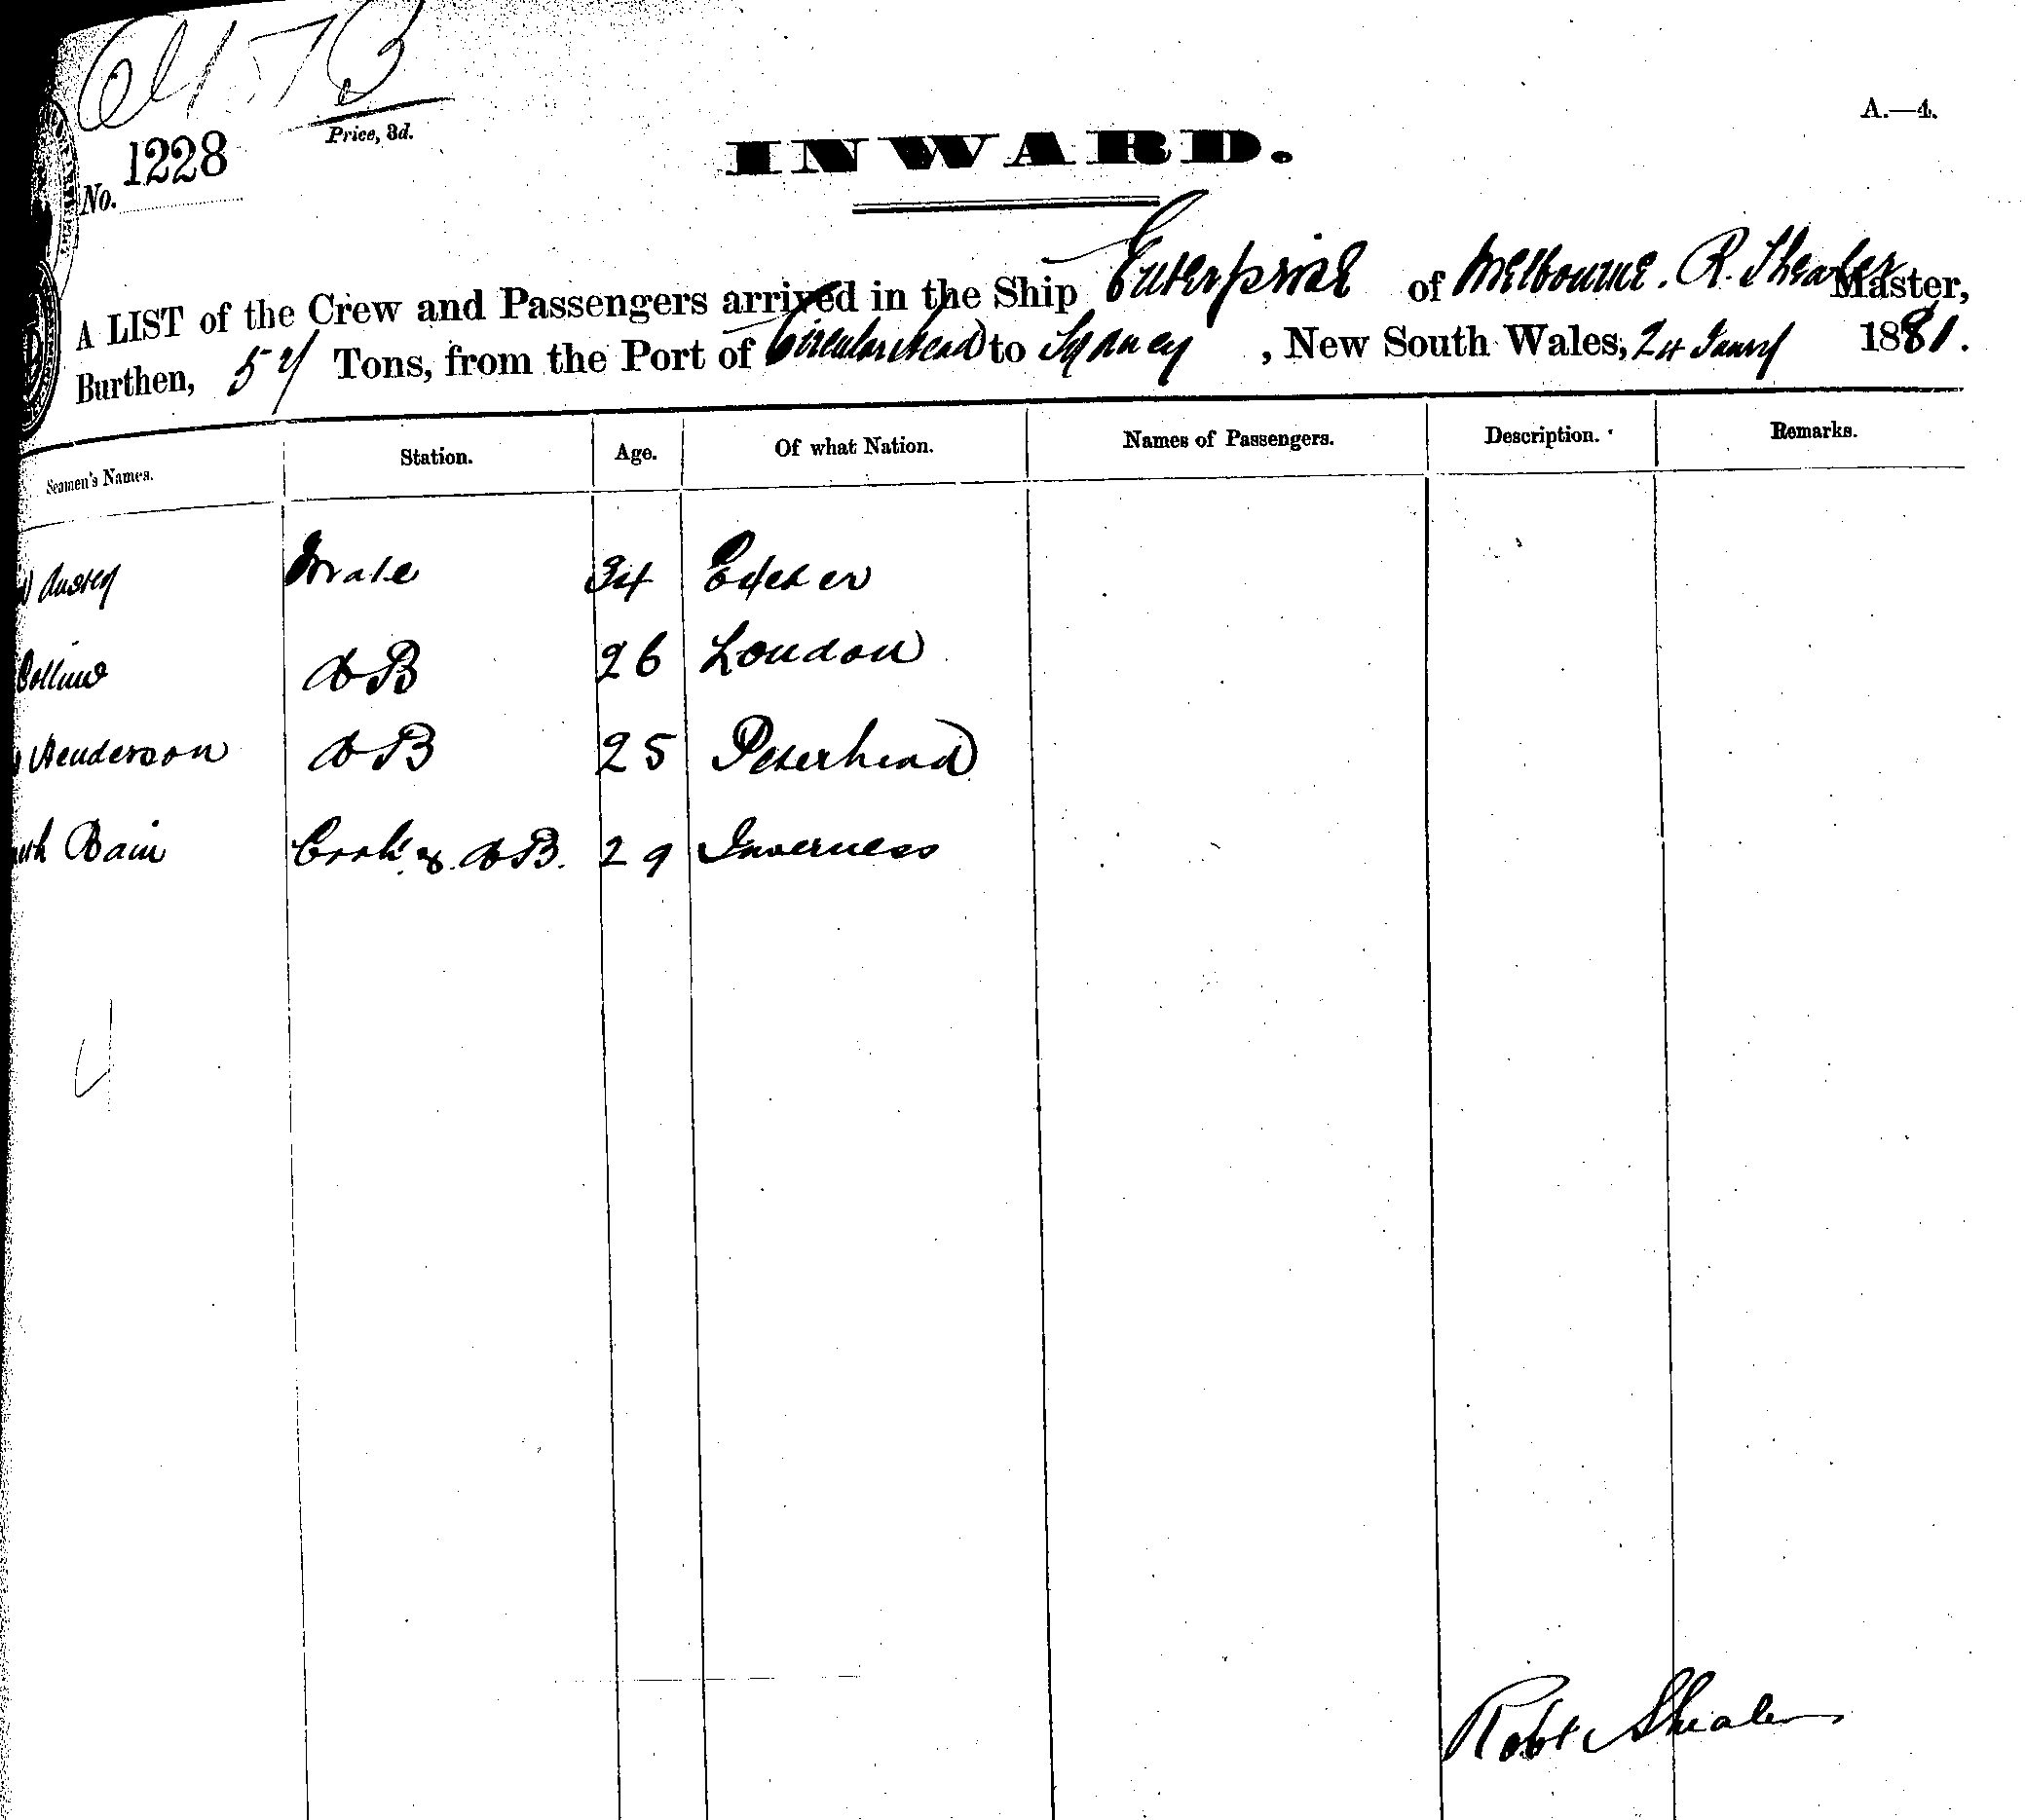 A.—4.
Price, 3d.
No. 1228
INWARD.
A LIST of the Crew and Passengers arrived in the Ship Enterprise of Melbourne. R. Master,
Burthen, 57 Tons, from the Port of Circular Head to Sydney, New South Wales, 24 Janry 1881.
Seamen's Names. Station. Age. Of what Nation. Names of Passengers. Description. Remarks.
Mate 34 Exeter
Collins AB 26 London
Henderson AB 25 Peterhead
Bain Cook & AB. 29 Inverness
4
Robt